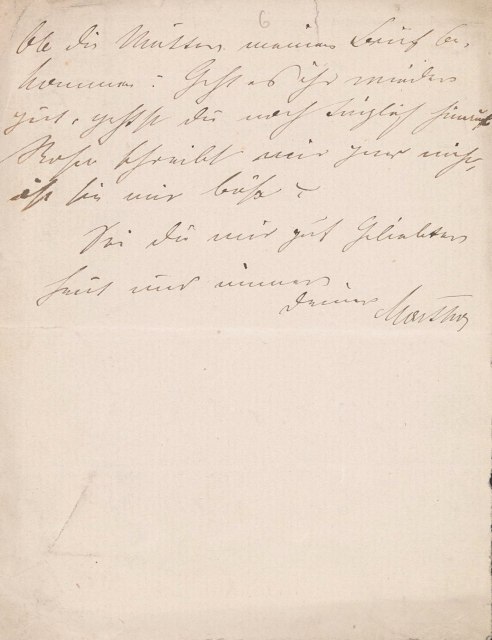 6
Ob die Mutter meinen Brief be-
kommen? Geht es ihr wieder
gut, gehst du noch täglich hinauf
Rosa schreibt mir gar nicht,
ist sie mir böse?
Sei du mir gut Geliebter
heut und immer
Deiner Martha